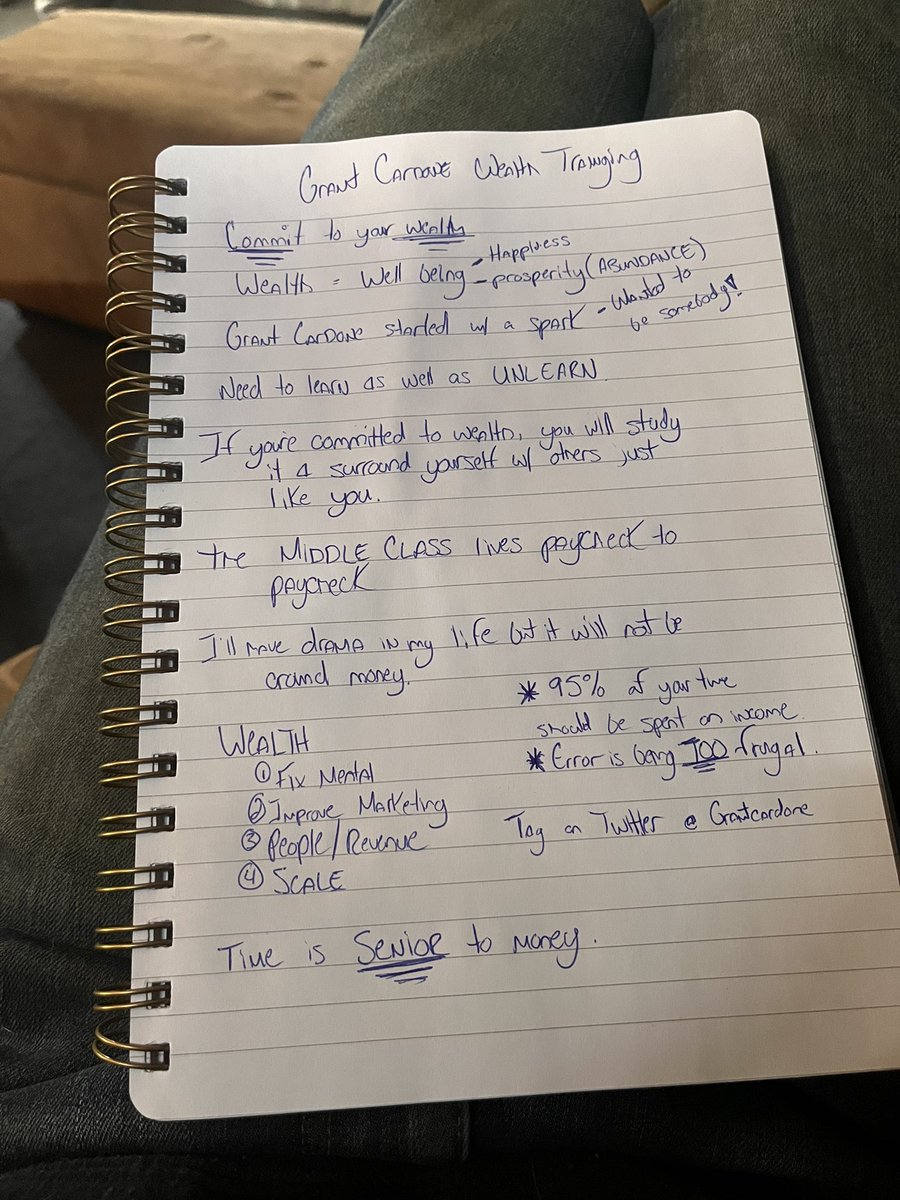 GRANT CARDONE WEALTH TRAINGING
Commit to your wealth
WEALTH = Well being - Happiness
- prosperity (ABUNDANCE)
GRANT CARDONE started w/ a SPARK - Wanted to
be somebody!
Need to learn as well as UNLEARN.
If you're committed to wealth, you will study
it & surround yourself w/ others just
like you.
THE MIDDLE CLASS lives paycheck to
paycheck
I'll have drama in my life but it will not be
around money.
* 95% of your time
should be spent on income.
* Error is being TOO frugal.
Tag on Twitter @ Grantcardone
WEALTH
① Fix Mental
② Improve Marketing
③ People/Revenue
④ SCALE
Time is SENIOR to money.